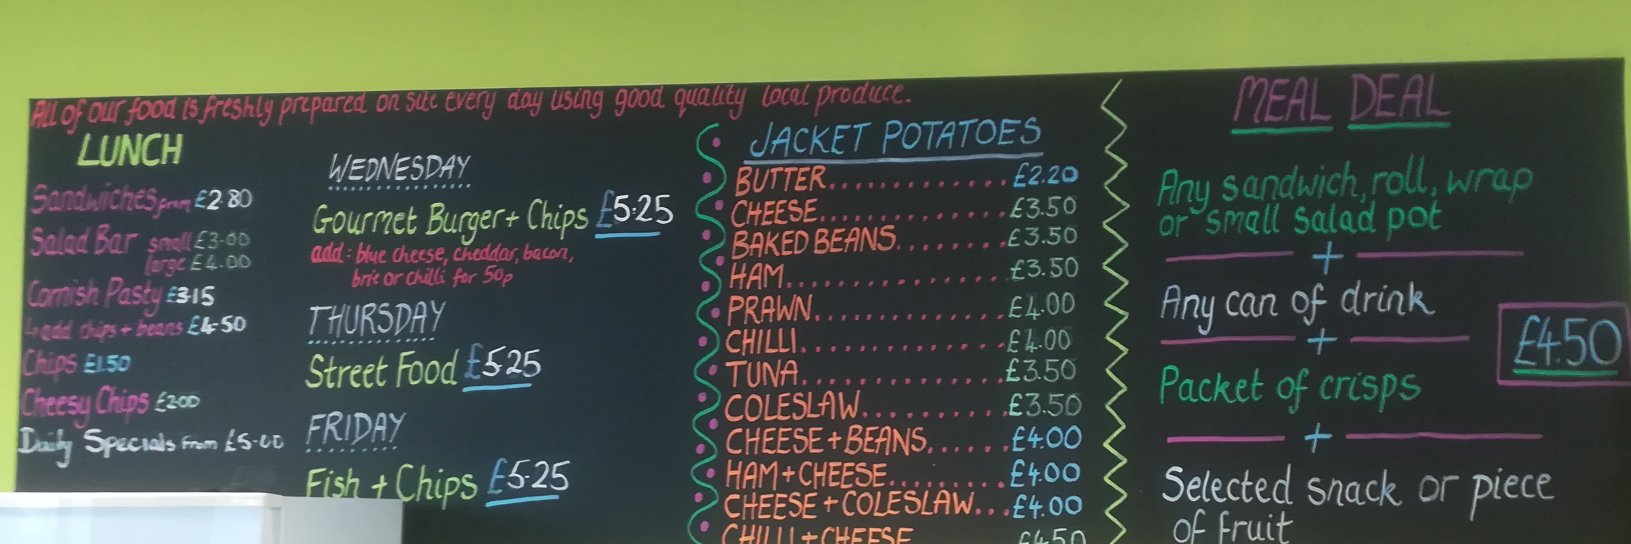 All of our food is freshly prepared on site every day using good quality local produce.
LUNCH
Sandwiches from £2.80
Salad Bar small £3.00
large £4.00
Cornish Pasty £3.15
↳ add chips + beans £4.50
Chips £1.50
Cheesy Chips £2.00
Daily Specials From £5.00
WEDNESDAY
Gourmet Burger + Chips £5.25
add: blue cheese, cheddar, bacon,
brie or chilli for 50p
THURSDAY
Street Food £5.25
FRIDAY
Fish + Chips £5.25
JACKET POTATOES
BUTTER............. £2.20
CHEESE.............. £3.50
BAKED BEANS........ £3.50
HAM................ £3.50
PRAWN.............. £4.00
CHILLI............... £4.00
TUNA................ £3.50
COLESLAW.......... £3.50
CHEESE + BEANS...... £4.00
HAM + CHEESE......... £4.00
CHEESE + COLESLAW... £4.00
CHILLI + CHEESE £4.50
MEAL DEAL
Any sandwich, roll, wrap
or small salad pot
+
Any can of drink
+
£4.50
Packet of crisps
+
Selected snack or piece
of fruit